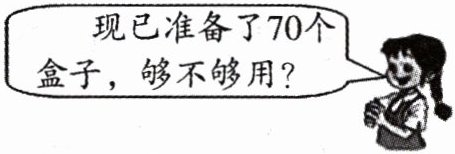 现已准备了70个
盒子，够不够用？